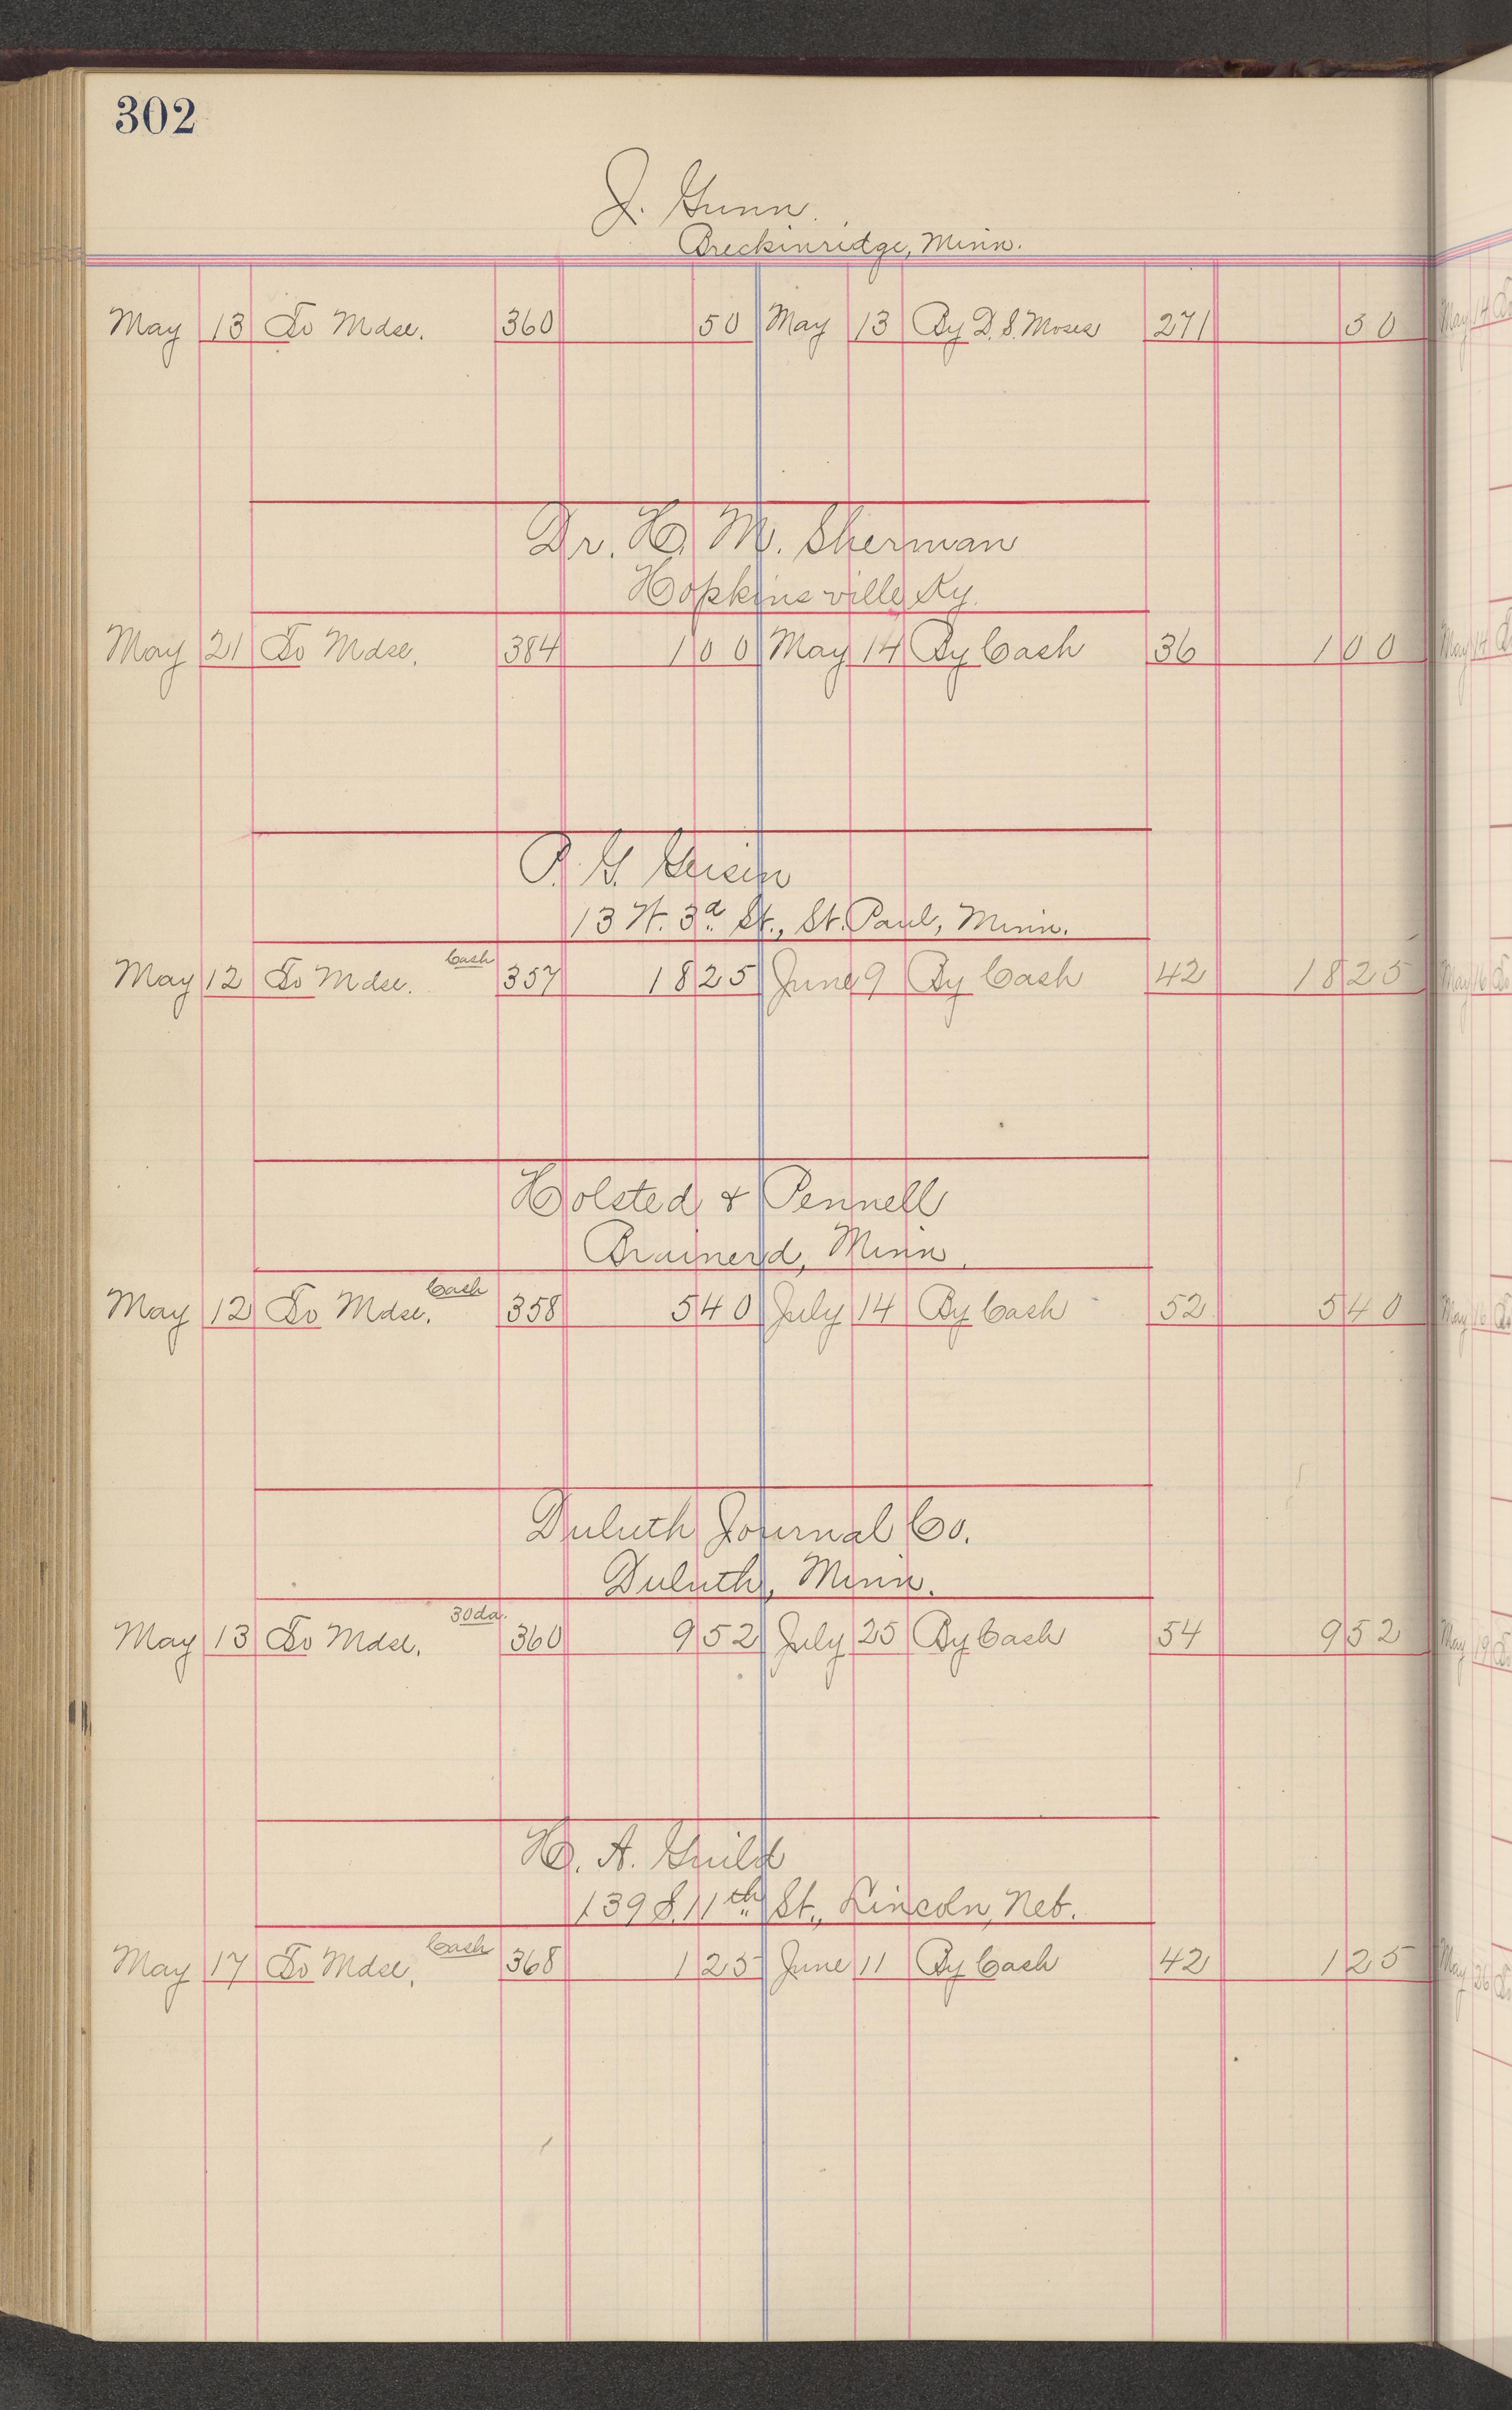 302
J. Gunn.
Breckinridge, Minn.
May 13 To Mdse. 360 50 May 13 By D. S. Moses 271 50
Dr. H. M. Sherman
Hopkinsville, Ky.
May 21 To Mdse. 384 1 00 May 14 By Cash 36 1 00
P. G.
13 W. 3d St., St. Paul, Minn.
May 12 To Mdse. Cash 357 18 25 June 9 By Cash 42 18 25
Holsted & Pennell
Brainerd, Minn.
May 12 To Mdse. Cash 358 5 40 July 14 By Cash 52 5 40
Duluth Journal Co.
Duluth, Minn.
May 13 To Mdse. 30 da. 360 9 52 July 25 By Cash 54 9 52
H. A. Guild
139 S. 11th St., Lincoln, Neb.
May 17 To Mdse. Cash 368 1 25 June 11 By Cash 42 1 25